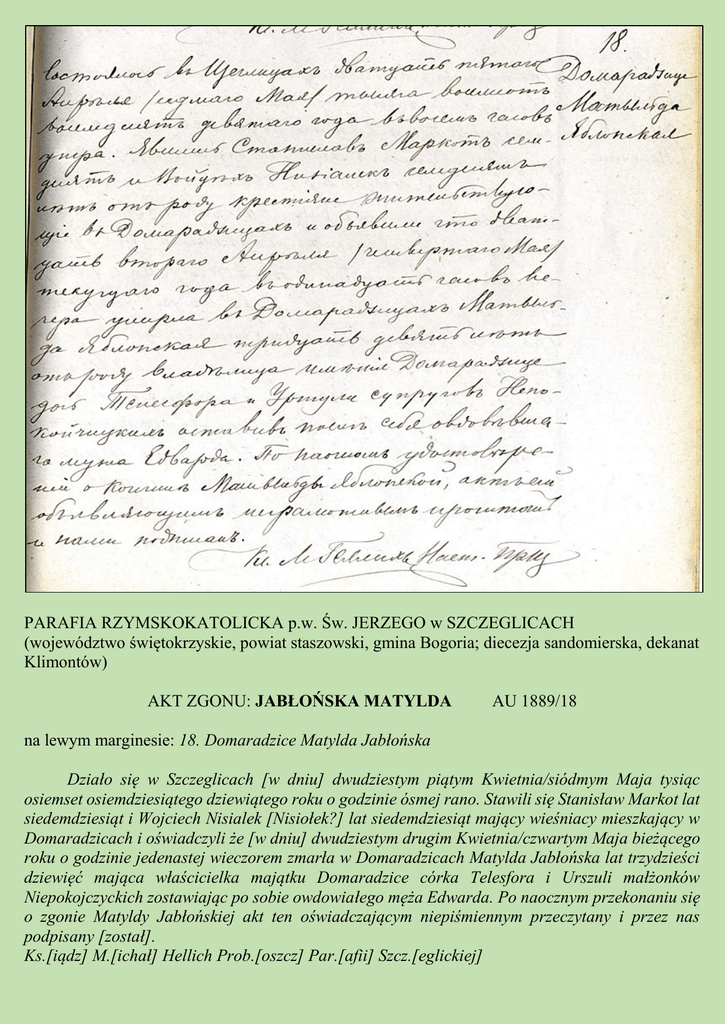 18.
Домарадзице
Матыльда
Яблонская
Состоялось въ Щеглицахъ двадцать пятаго
Апрѣля /седмаго Мая/ тысяча восемьсотъ
восемдесятъ девятаго года въ восемь часовъ
утра. Явились Станиславъ Маркотъ сем-
десятъ и Войцехъ Нисіалекъ семдесятъ
лѣтъ отъ роду крестьяне жительствую-
щіе въ Домарадзицахъ и объявили что двад-
цать втораго Апрѣля /четвертаго Мая/
текущаго года въ одинадцать часовъ ве-
чера умерла въ Домарадзицахъ Матыль-
да Яблонская тридцать девять лѣтъ
отъ роду владѣлица имѣнія Домарадзице
дочь Телесфора и Уршули супруговъ Непо-
койчицкихъ оставивъ послѣ себя овдовѣвша-
го мужа Едварда. По наочномъ удостовѣре-
ніи о кончинѣ Матыльды Яблонской, актъ сей
объявляющимъ неграмотнымъ прочитанъ
и нами подписанъ.
Кс. М Геллихъ Наст. Прщ
PARAFIA RZYMSKOKATOLICKA p.w. Św. JERZEGO w SZCZEGLICACH
(województwo świętokrzyskie, powiat staszowski, gmina Bogoria; diecezja sandomierska, dekanat
Klimontów)
AKT ZGONU: JABŁOŃSKA MATYLDA AU 1889/18
na lewym marginesie: 18. Domaradzice Matylda Jabłońska
Działo się w Szczeglicach [w dniu] dwudziestym piątym Kwietnia/siódmym Maja tysiąc
osiemset osiemdziesiątego dziewiątego roku o godzinie ósmej rano. Stawili się Stanisław Markot lat
siedemdziesiąt i Wojciech Nisialek [Nisiołek?] lat siedemdziesiąt mający wieśniacy mieszkający w
Domaradzicach i oświadczyli że [w dniu] dwudziestym drugim Kwietnia/czwartym Maja bieżącego
roku o godzinie jedenastej wieczorem zmarła w Domaradzicach Matylda Jabłońska lat trzydzieści
dziewięć mająca właścicielka majątku Domaradzice córka Telesfora i Urszuli małżonków
Niepokojczyckich zostawiając po sobie owdowiałego męża Edwarda. Po naocznym przekonaniu się
o zgonie Matyldy Jabłońskiej akt ten oświadczającym niepiśmiennym przeczytany i przez nas
podpisany [został].
Ks.[iądz] M.[ichał] Hellich Prob.[oszcz] Par.[afii] Szcz.[eglickiej]